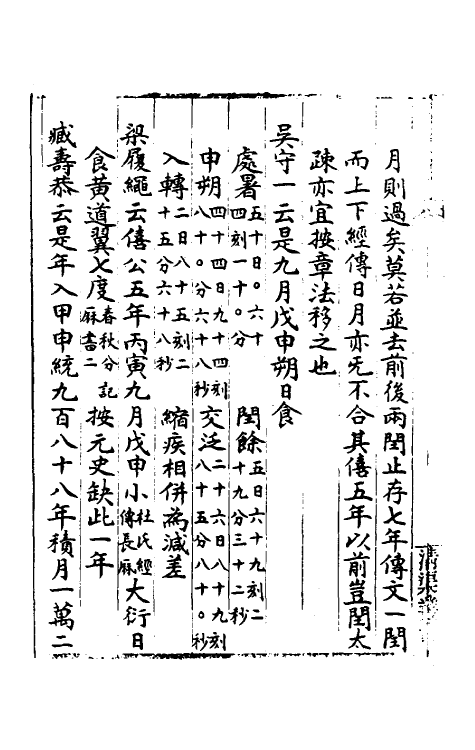 月則過矣莫若並去前後兩閏止存七年傳文一閏
而上下經傳日月亦无不合其僖五年以前豈閏太
疎亦宜按章法移之也
吳守一云是九月戊申朔日食
處暑五十日。六十四刻一十。分 閏餘五日六十九刻二十九分三十二秒
申朔四十四日九十四刻八十。分六十八秒 交泛二十六日八十九刻八十五分八十。秒
入轉二日八十五刻二十五分六十八秒 縮疾相併為減差
梁履繩云僖公五年丙寅九月戊申小杜氏經傳長厤大衍日
食黃道翼七度春秋分記厤書二按元史缺此一年
臧壽恭云是年入甲申統九百八十八年積月一萬二